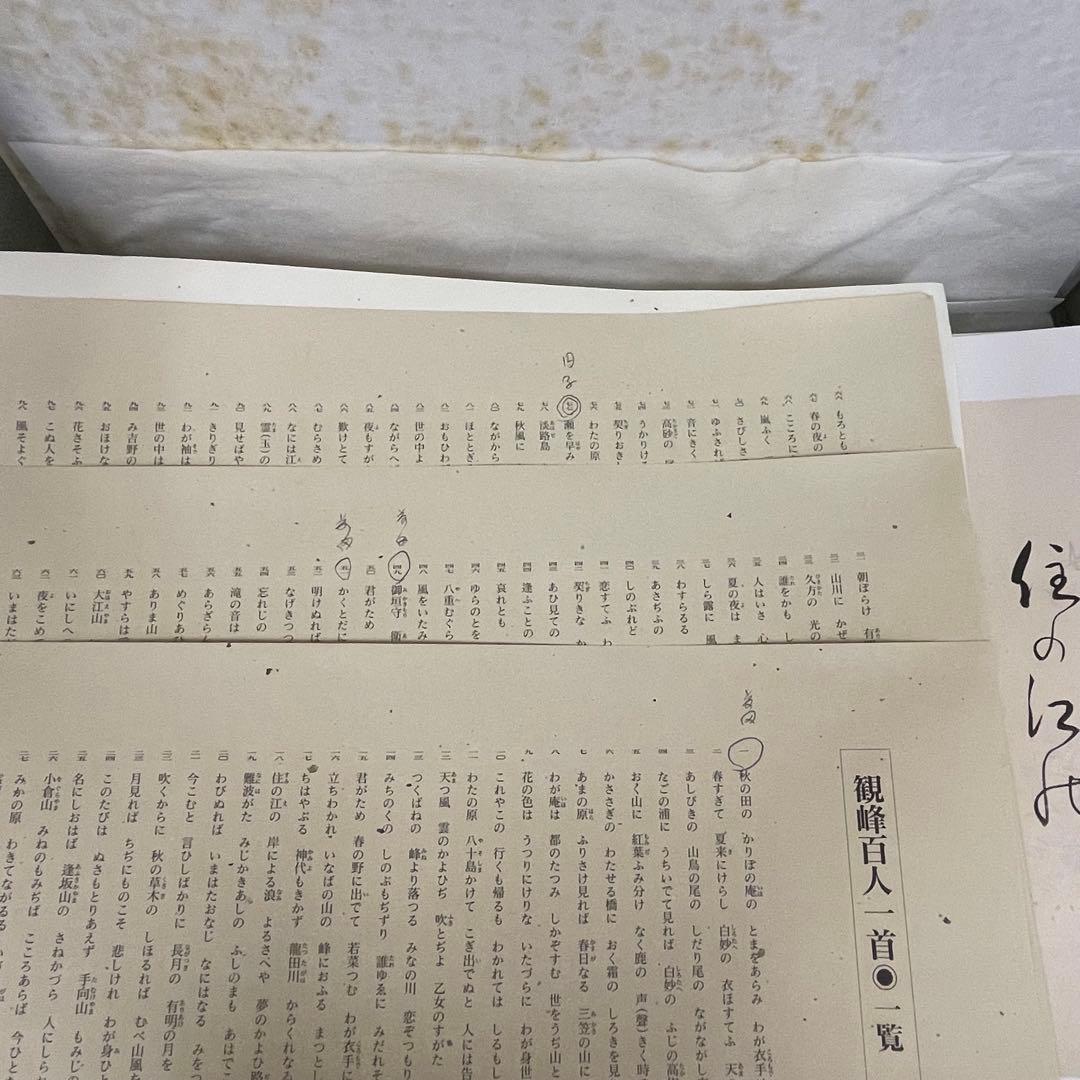 観峰百人一首◉一覧
一 秋の田の かりほの庵の とまをあらみ わが衣手
二 春すぎて 夏来にけらし 白妙の 衣ほすてふ 天
三 あしびきの 山鳥の尾の しだり尾の ながながし
四 たごの浦に うちいでて見れば 白妙の ふじの高
五 おく山に 紅葉ふみ分け なく鹿の 声(聲)きく時
六 かささぎの わたせる橋に おく霜の しろきを見
七 あまの原 ふりさけ見れば 春日なる 三笠の山に
八 わが庵は 都のたつみ しかぞすむ 世をうぢ山と
九 花の色は うつりにけりな いたづらに わが身世
一〇 これやこの 行くも帰るも わかれては しるもし
一一 わたの原 八十島かけて こぎ出でぬと 人には告
一二 天つ風 雲のかよひぢ 吹きとぢよ 乙女のすがた
一三 つくばねの 峰より落つる みなの川 恋ぞつもり
一四 みちのくの しのぶもぢずり 誰ゆゑに みだれそ
一五 君がため 春の野に出でて 若菜つむ わが衣手に
一六 立ちわかれ いなばの山の 峰におふる まつとし
一七 ちはやぶる 神代もきかず 龍田川 からくれなゐ
一八 住の江の 岸による浪 よるさへや 夢のかよひ路
一九 難波がた みじかきあしの ふしのまも あはでこ
二〇 わびぬれば いまはたおなじ なにはなる みをつ
二一 今こむと 言ひしばかりに 長月の 有明の月を
二二 吹くからに 秋の草木の しほるれば むべ山風を
二三 月見れば ちぢにものこそ 悲しけれ わが身ひと
二四 このたびは ぬさもとりあえず 手向山 もみじの
二五 名にしおはば 逢坂山の さねかづら 人にしられ
二六 小倉山 みねのもみぢば こころあらば 今ひとた
二七 みかの原 わきてながるる
三一 朝ぼらけ 有
三二 山川に かぜ
三三 久方の 光の
三四 誰をかも し
三五 人はいさ 心
三六 夏の夜は ま
三七 しら露に 風
三八 わすらるる
三九 あさぢふの
四〇 しのぶれど
四一 恋すてふ わ
四二 契りきな か
四三 あひ見ての
四四 逢ふことの
四五 哀れとも
四六 ゆらのとを
四七 八重むぐら
四八 風をいたみ
四九 御垣守 衛
五〇 君がため
五一 かくとだに
五二 明けぬれば
五三 なげきつつ
五四 忘れじの
五五 滝の音は
五六 あらざらん
五七 めぐりあひ
五八 ありま山
五九 やすらは
六〇 大江山
六一 いにしへ
六二 夜をこめ
六三 いまはた
六六 もろとも
六七 春の夜の
六八 こころに
六九 嵐ふく
七〇 さびしさ
七一 ゆふされば
七二 音にきく
七三 高砂の
七四 うかりけ
七五 契りおき
七六 わたの原
七七 瀬を早み
七八 淡路島
七九 秋風に
八〇 ながから
八一 ほととぎ
八二 おもひわ
八三 世の中よ
八四 ながらへ
八五 夜もすが
八六 歎けとて
八七 むらさめ
八八 なには江
八九 霊(玉)の
九〇 見せばや
九一 きりぎり
九二 わが袖は
九三 世の中は
九四 み吉野の
九五 おほけな
九六 花さそふ
九七 こぬ人を
九八 風そよぐ
住の江の